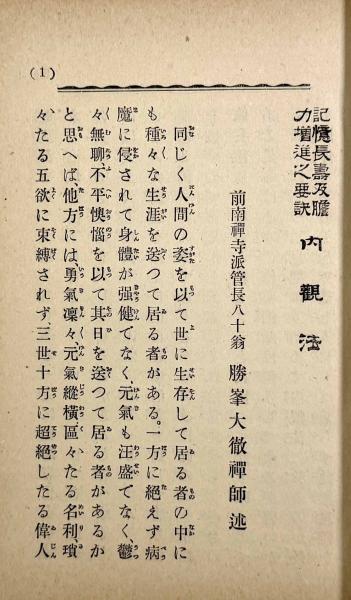 (1)
記憶長壽及膽
力增進之要訣 內觀法
前南禪寺派管長八十翁 勝峯大徹禪師述
同じく人間の姿を以て世に生存して居る者の中に
も種々な生涯を送つて居る者がある。一方に絕えず病
魔に侵されて身體が强健でなく、元氣も汪盛でなく、鬱
々無聊、不平懊惱を以て其日を送つて居る者があるか
と思へば他方には、勇氣凜々、元氣縱橫區々たる名利、瑣
々たる五欲に束縛されず、三世十方に超絕したる偉人